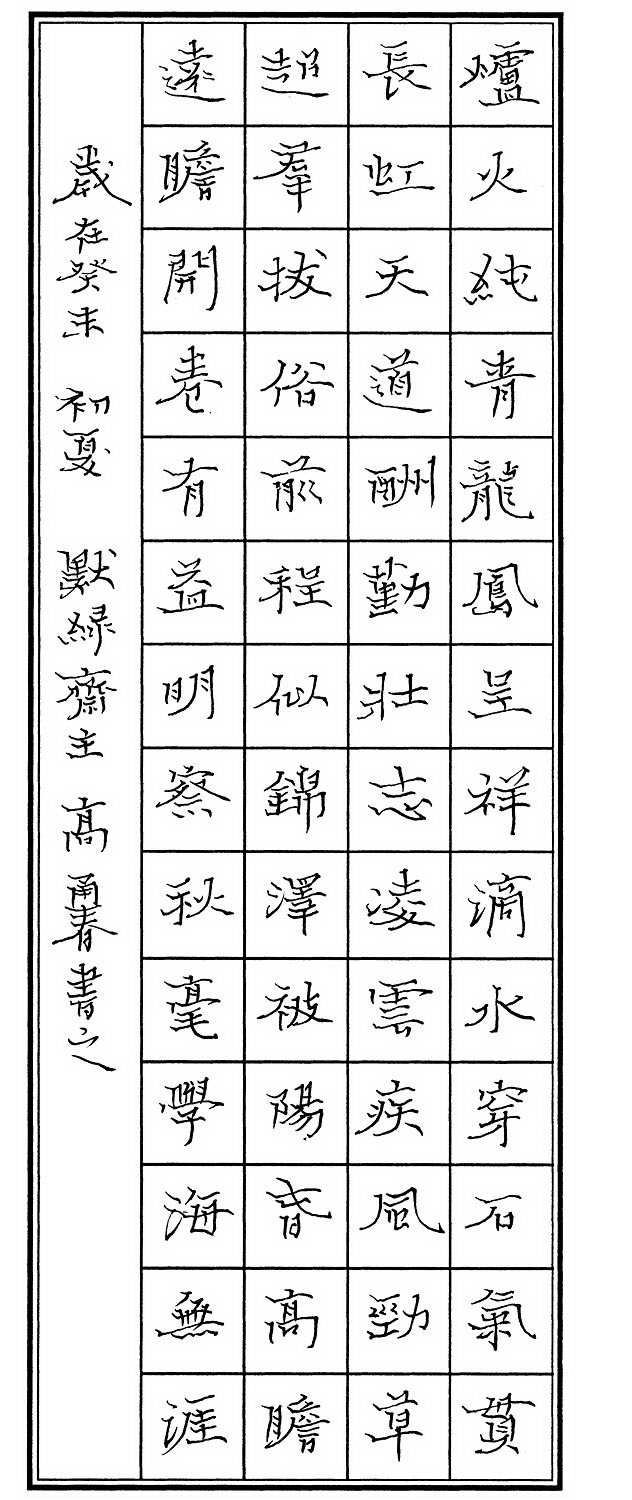 爐火純青龍鳳呈祥滴水穿石氣貫
長虹天道酬勤壯志凌雲疾風勁草
超羣拔俗前程似錦澤被陽春高瞻
遠瞻開卷有益明察秋毫學海無涯
歲在癸未 初夏 默緑齋主 高甬春書之